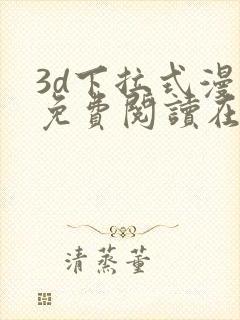 3d下拉式漫
免費閱讀在
清蒸董